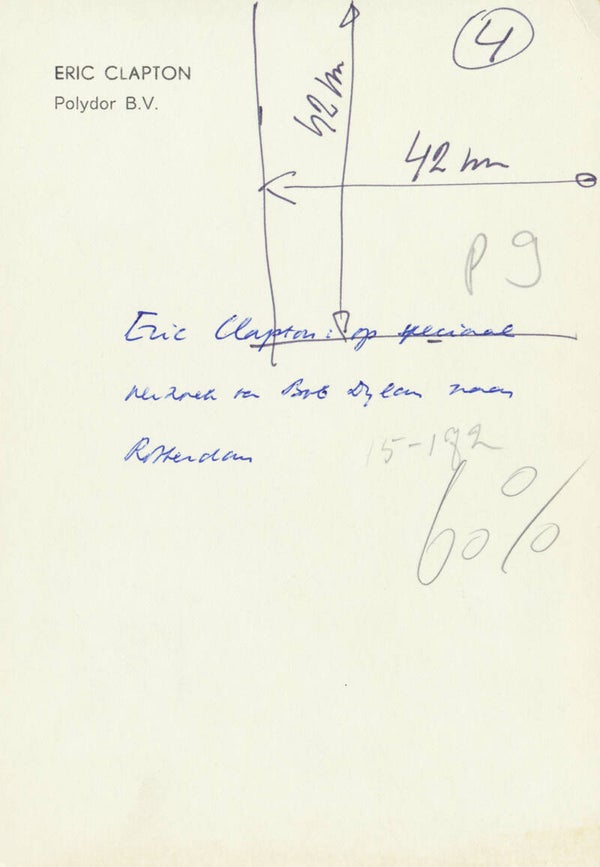 ERIC CLAPTON
Polydor B.V.
4
42 mm
42 mm
p 9
Eric Clapton: op speciaal
verzoek van Bob Dylan naar
Rotterdam
15-192
60%